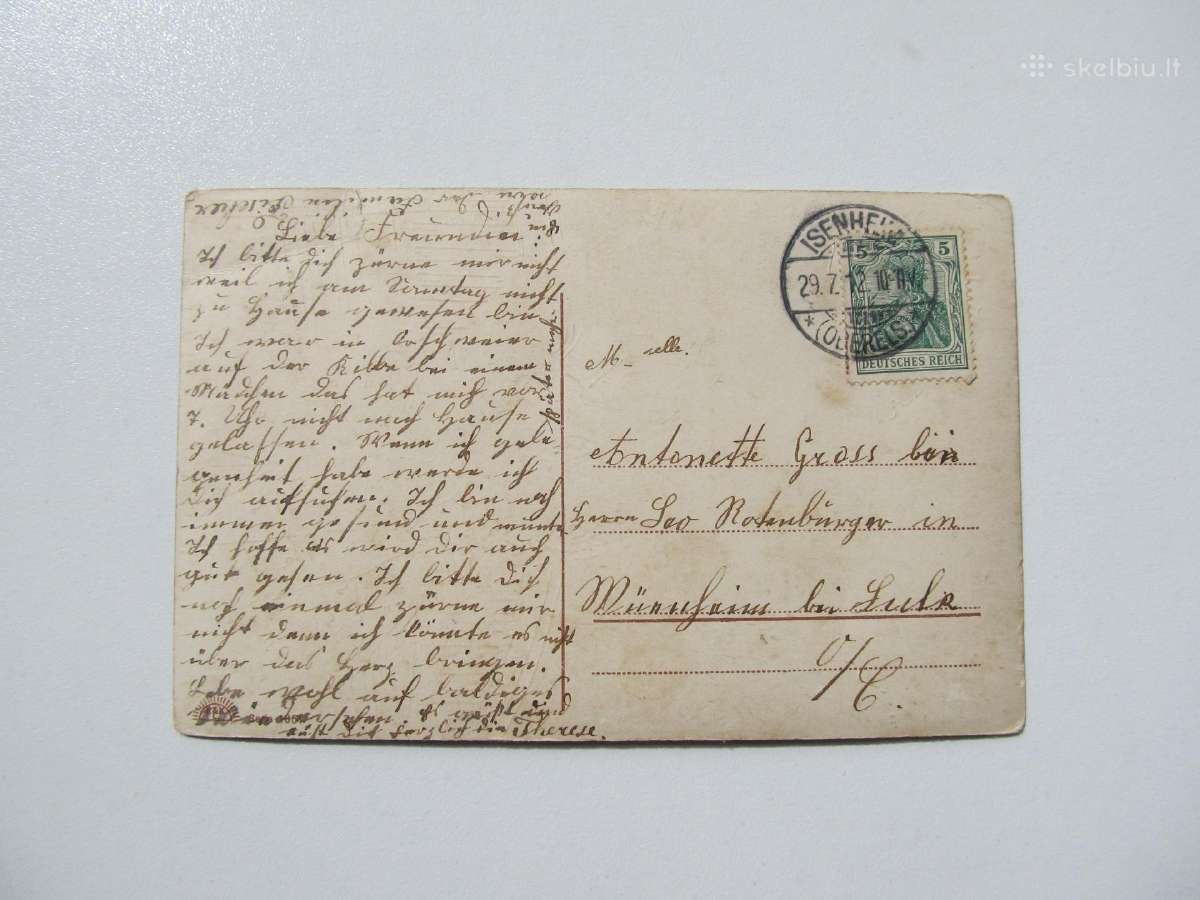 skelbiu.lt
Liebe Freundin!
Ich bitte dich zürne mir nicht
weil ich am Sonntag nicht
zu Hause gewesen bin
Ich war in
auf der Kilbe bei einem
Mädchen das hat mich vor
7. Uhr nicht nach Hause
gelassen. Wenn ich gele-
genheit habe werde ich
Dich aufsuchen. Ich bin noch
immer gesund und munter
Ich hoffe es wird dir auch
gut gehen. Ich bitte Dich
noch einmal zürne mir
nicht denn ich könnte es nicht
über das Herz bringen.
Lebe wohl auf baldiges
Wiedersehen. Es grüßt und
küßt dich herzlich die Therese.
der Familie Fischer
ISENHEIM
29.7.12. 10-11V.
* (OBERELS.)
5 5
DEUTSCHES REICH
M-elle.
Antonette Gross bei
Herrn Leo Rotenburger in
Wüenheim bei Sulz
O/E.